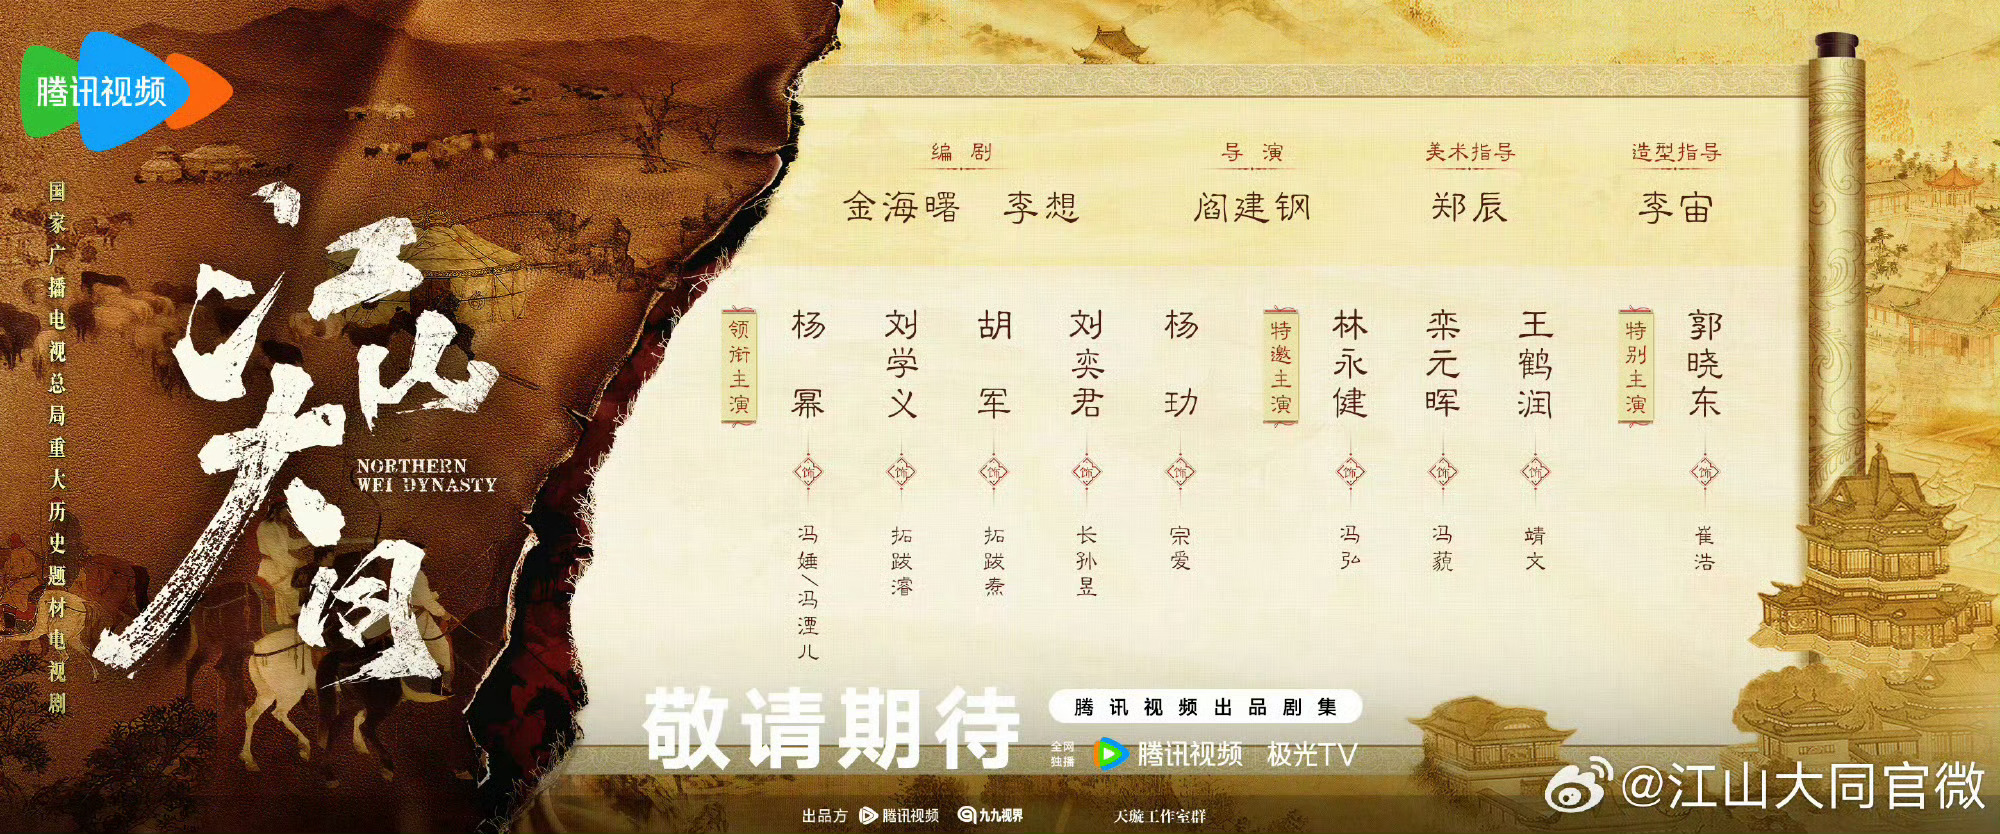 腾讯视频
国家广播电视总局重大历史题材电视剧
江山
大同
NORTHERN
WEI DYNASTY
编剧
金海曙 李想
导演
阎建钢
美术指导
郑辰
造型指导
李宙
领衔主演
杨幂
饰
冯娷/冯湮儿
刘学义
饰
拓跋濬
胡军
饰
拓跋焘
刘奕君
饰
长孙昱
杨玏
饰
宗爱
特邀主演
林永健
饰
冯弘
栾元晖
饰
冯藐
王鹤润
饰
靖文
特别主演
郭晓东
饰
崔浩
敬请期待
腾讯视频出品剧集
全网
独播
腾讯视频 极光TV
出品方 腾讯视频 九九视界 天璇工作室群
@江山大同官微